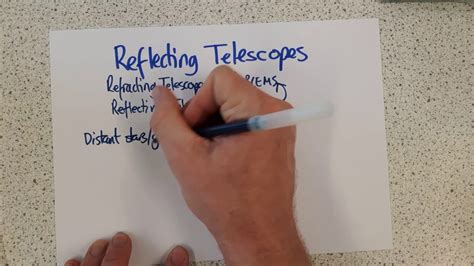 Reflecting Telescopes
Refracting Telescope
Reflecting
Distant stars/